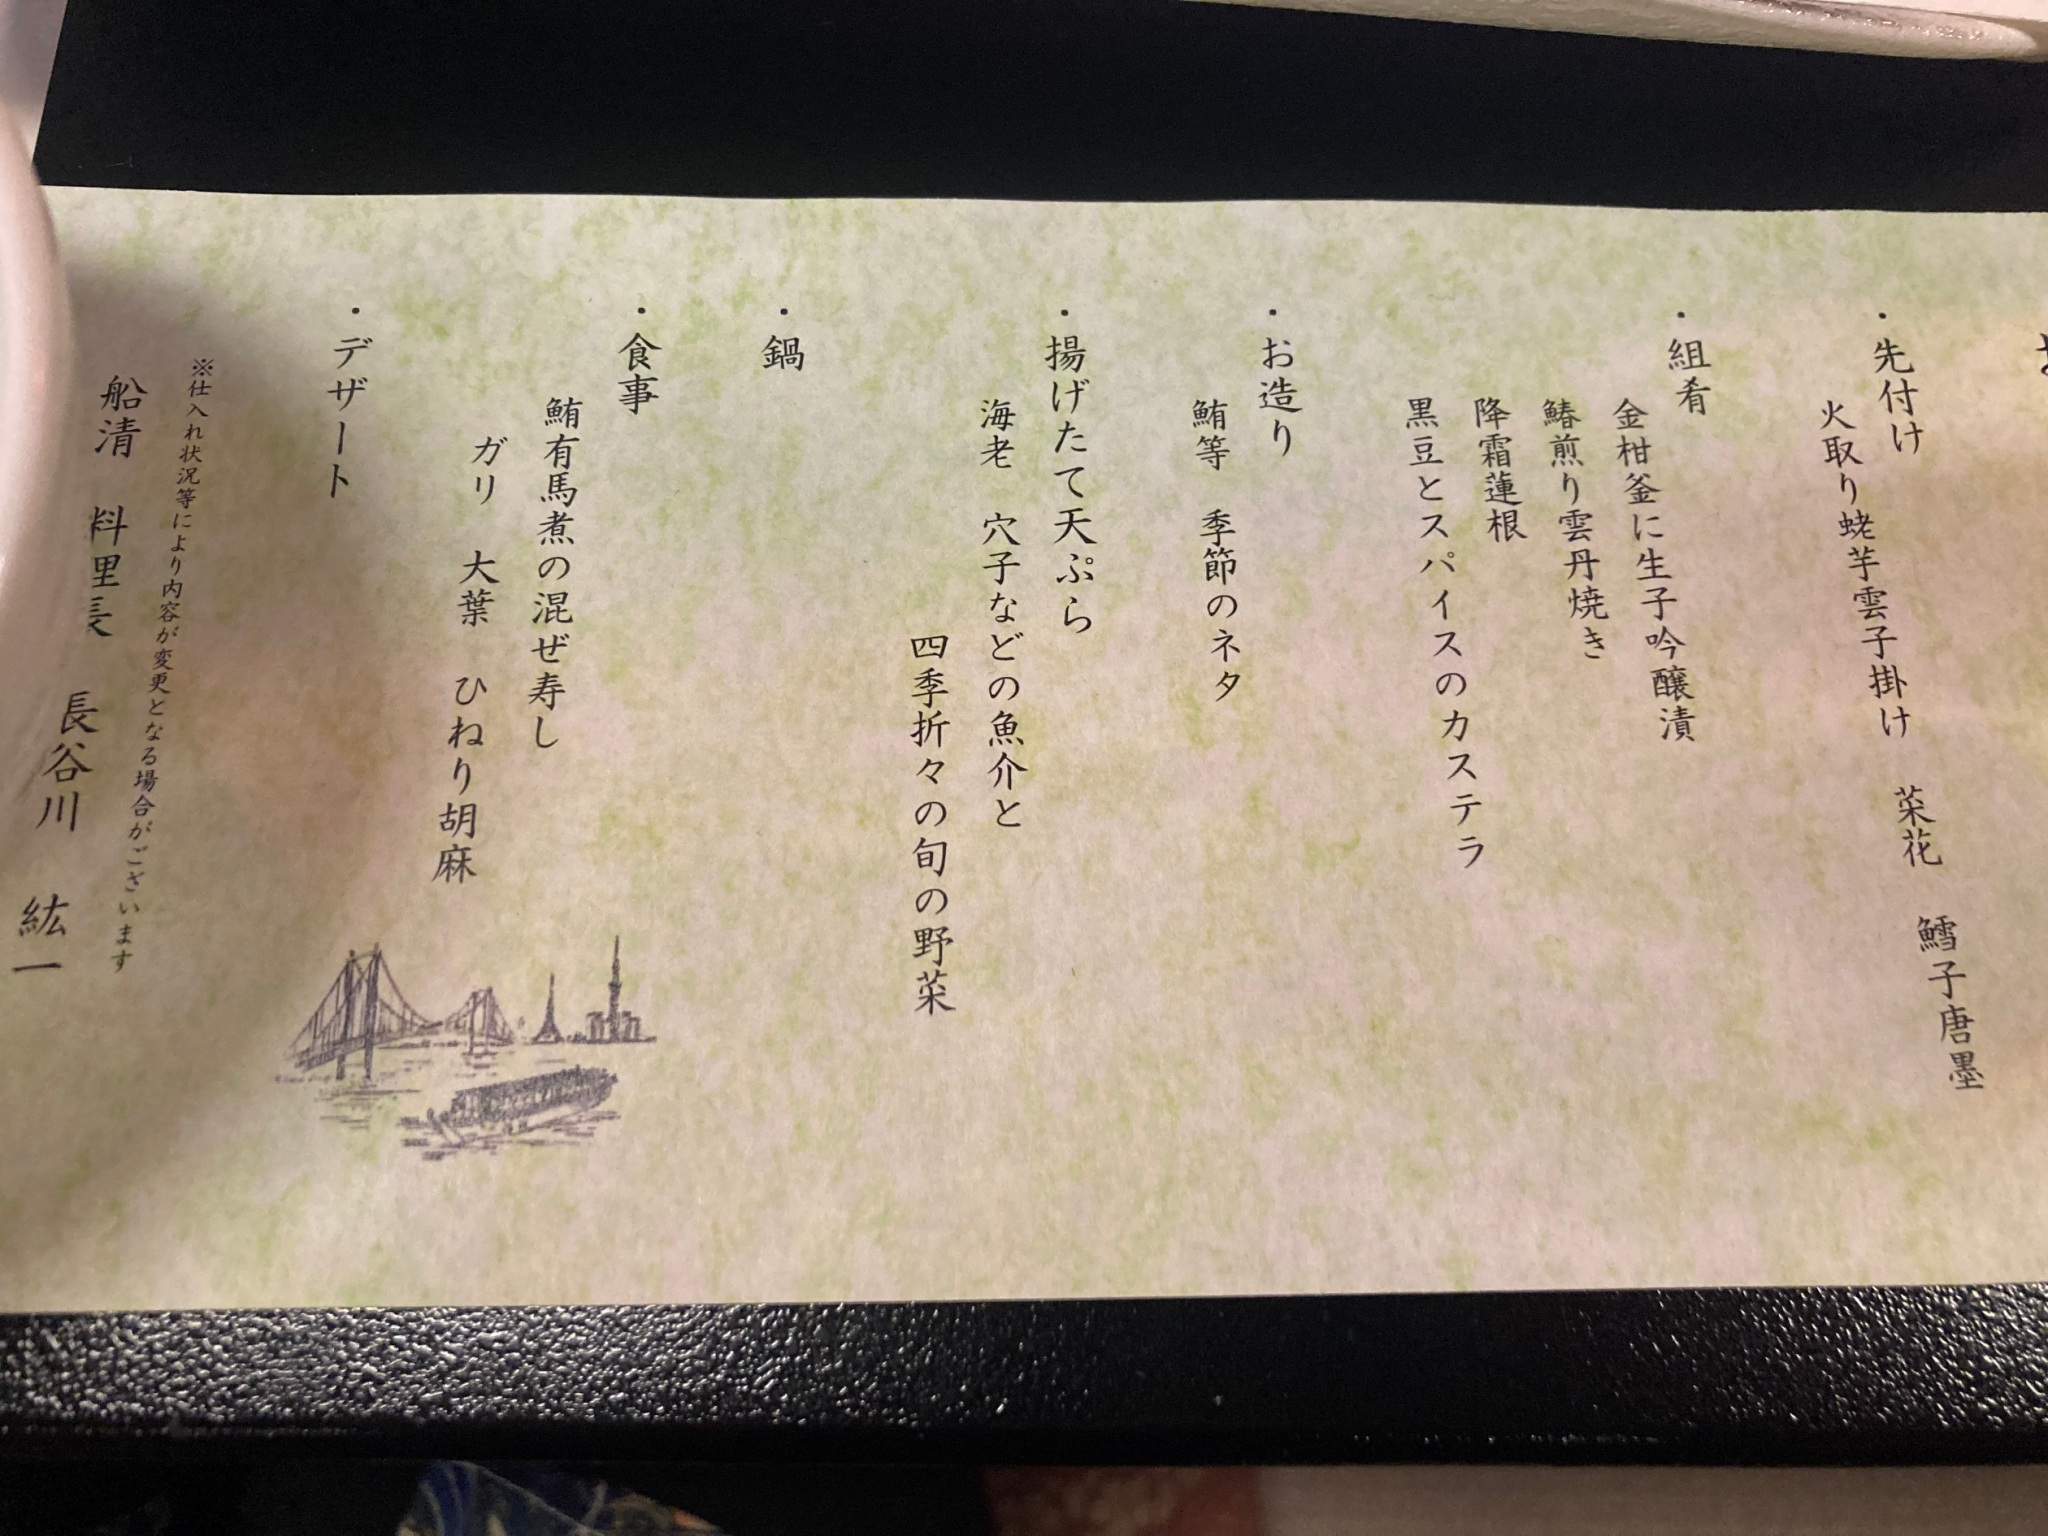 ・先付け
火取り蛯芋雲子掛け　菜花　鱈子唐墨
・組肴
金柑釜に生子吟醸漬
鰆煎り雲丹焼き
降霜蓮根
黒豆とスパイスのカステラ
・お造り
鮪等　季節のネタ
・揚げたて天ぷら
海老　穴子などの魚介と
四季折々の旬の野菜
・鍋
・食事
鮪有馬煮の混ぜ寿し
ガリ　大葉　ひねり胡麻
・デザート
※仕入れ状況等により内容が変更となる場合がございます
船清　料理長　長谷川　紘一